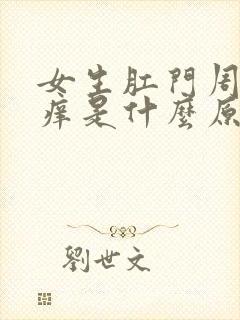 女生肛門周
痒是什麼原
劉世文